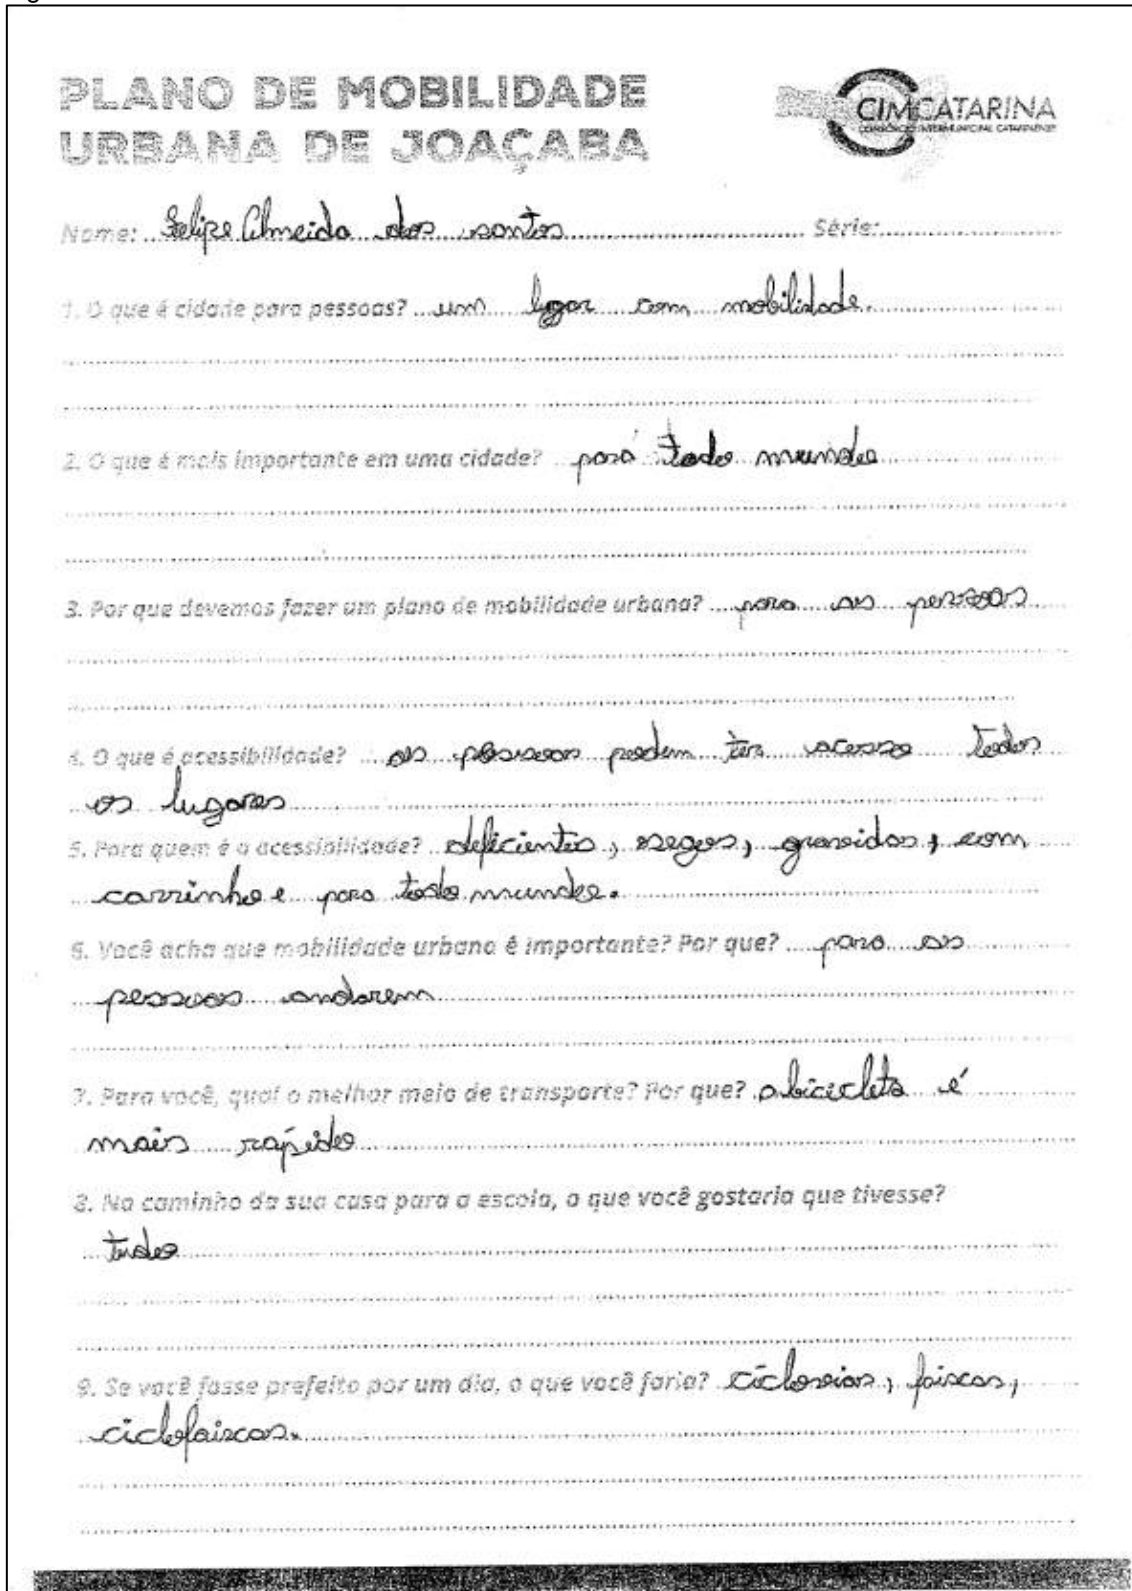 PLANO DE MOBILIDADE
URBANA DE JOAÇABA
CIMCATARINA
CONSÓRCIO INTERMUNICIPAL CATARINENSE
Nome: Felipe Almeida dos santos Série:
1. O que é cidade para pessoas? um lugar com mobilidade.
2. O que é mais importante em uma cidade? para todo mundo
3. Por que devemos fazer um plano de mobilidade urbana? para as pessoas
4. O que é acessibilidade? as pessoas podem ter acesso todos
os lugares
5. Para quem é a acessibilidade? deficientes, segos, gravidas, com
carrinho e para todo mundo.
6. Você acha que mobilidade urbana é importante? Por que? para as
pessoas andarem
7. Para você, qual o melhor meio de transporte? Por que? a bicicleta é
mais rapido
8. No caminho da sua casa para a escola, o que você gostaria que tivesse?
tudo
9. Se você fosse prefeito por um dia, o que você faria? ciclovias, faixas,
ciclofaixas.